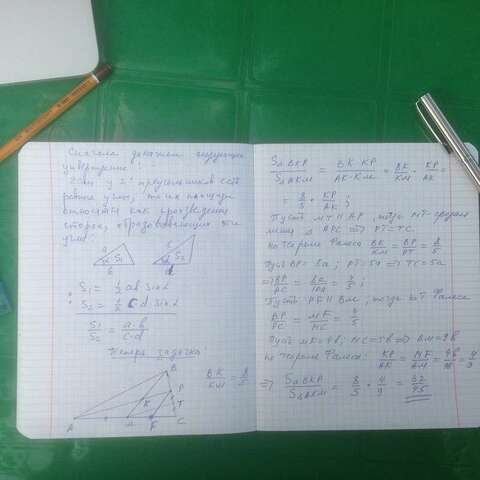 Сначала докажем следующее
утверждение:
Если у 2ˣ треугольников есть
равные углы, то их площади
относятся как произведения
сторон, образовывающих эти
углы
a
α
S₁
b
c
α
S₂
d
S₁ = 1/2 ab sin α
S₂ = 1/2 c d sin α
S₁/S₂ = a·b/c·d
Теперь задача:
BK/KM = 8/5
B
P
K
T
A
M
F
C
S△BKP/S△AKM = BK·KP/AK·KM = BK/KM · KP/AK =
= 8/5 · KP/AK ;
Пусть MT ∥ AP, тогда MT - средняя
линия △ APC ⇒ PT = TC.
По теореме Фалеса BK/KM = BP/PT = 8/5
Пусть BP = 8a; PT = 5a ⇒ TC = 5a
⇒ BP/PC = 4/5 ;
Пусть PF ∥ BM, тогда по т Фалеса
BP/PC = MF/FC = 4/5
Пусть MF = 4b; FC = 5b ⇒ AM = 9b
По теореме Фалеса: KP/AK = MF/AM = 4b/9b = 4/9
⇒ S△BKP/S△AKM = 8/5 · 4/9 = 32/45